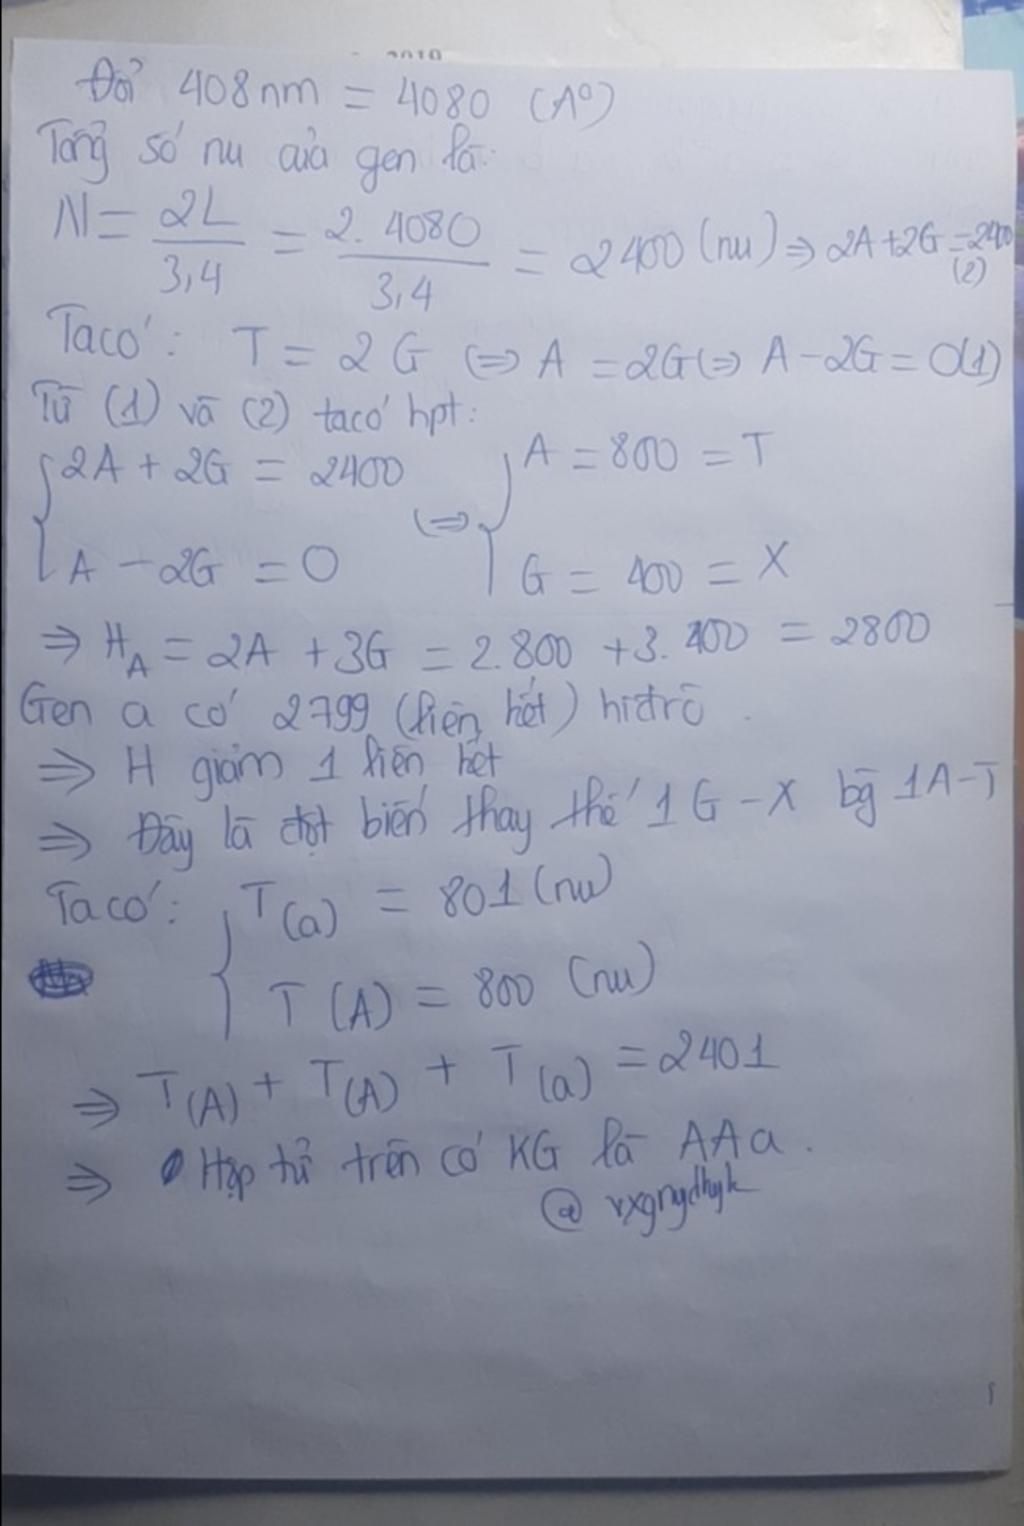 2019
Đổi 408nm = 4080 (A⁰)
Tổng số nu của gen là:
N = 2L/3,4 = 2.4080/3,4 = 2400 (nu) ⇒ 2A+2G=2400 (2)
Ta có: T = 2G ⇔ A = 2G ⇔ A - 2G = 0 (1)
Từ (1) và (2) ta có hpt:
{2A + 2G = 2400 ⇔ {A = 800 = T
A - 2G = 0 G = 400 = X
⇒ H_A = 2A + 3G = 2.800 + 3.400 = 2800
Gen a có 2799 (liên kết) hiđrô
⇒ H giảm 1 liên kết
⇒ Đây là đột biến thay thế 1G-X bg 1A-T
Ta có: {T(a) = 801 (nu)
T(A) = 800 (nu)
⇒ T(A) + T(A) + T(a) = 2401
⇒ Hợp tử trên có KG là AAa.
@ vxgnydhyk